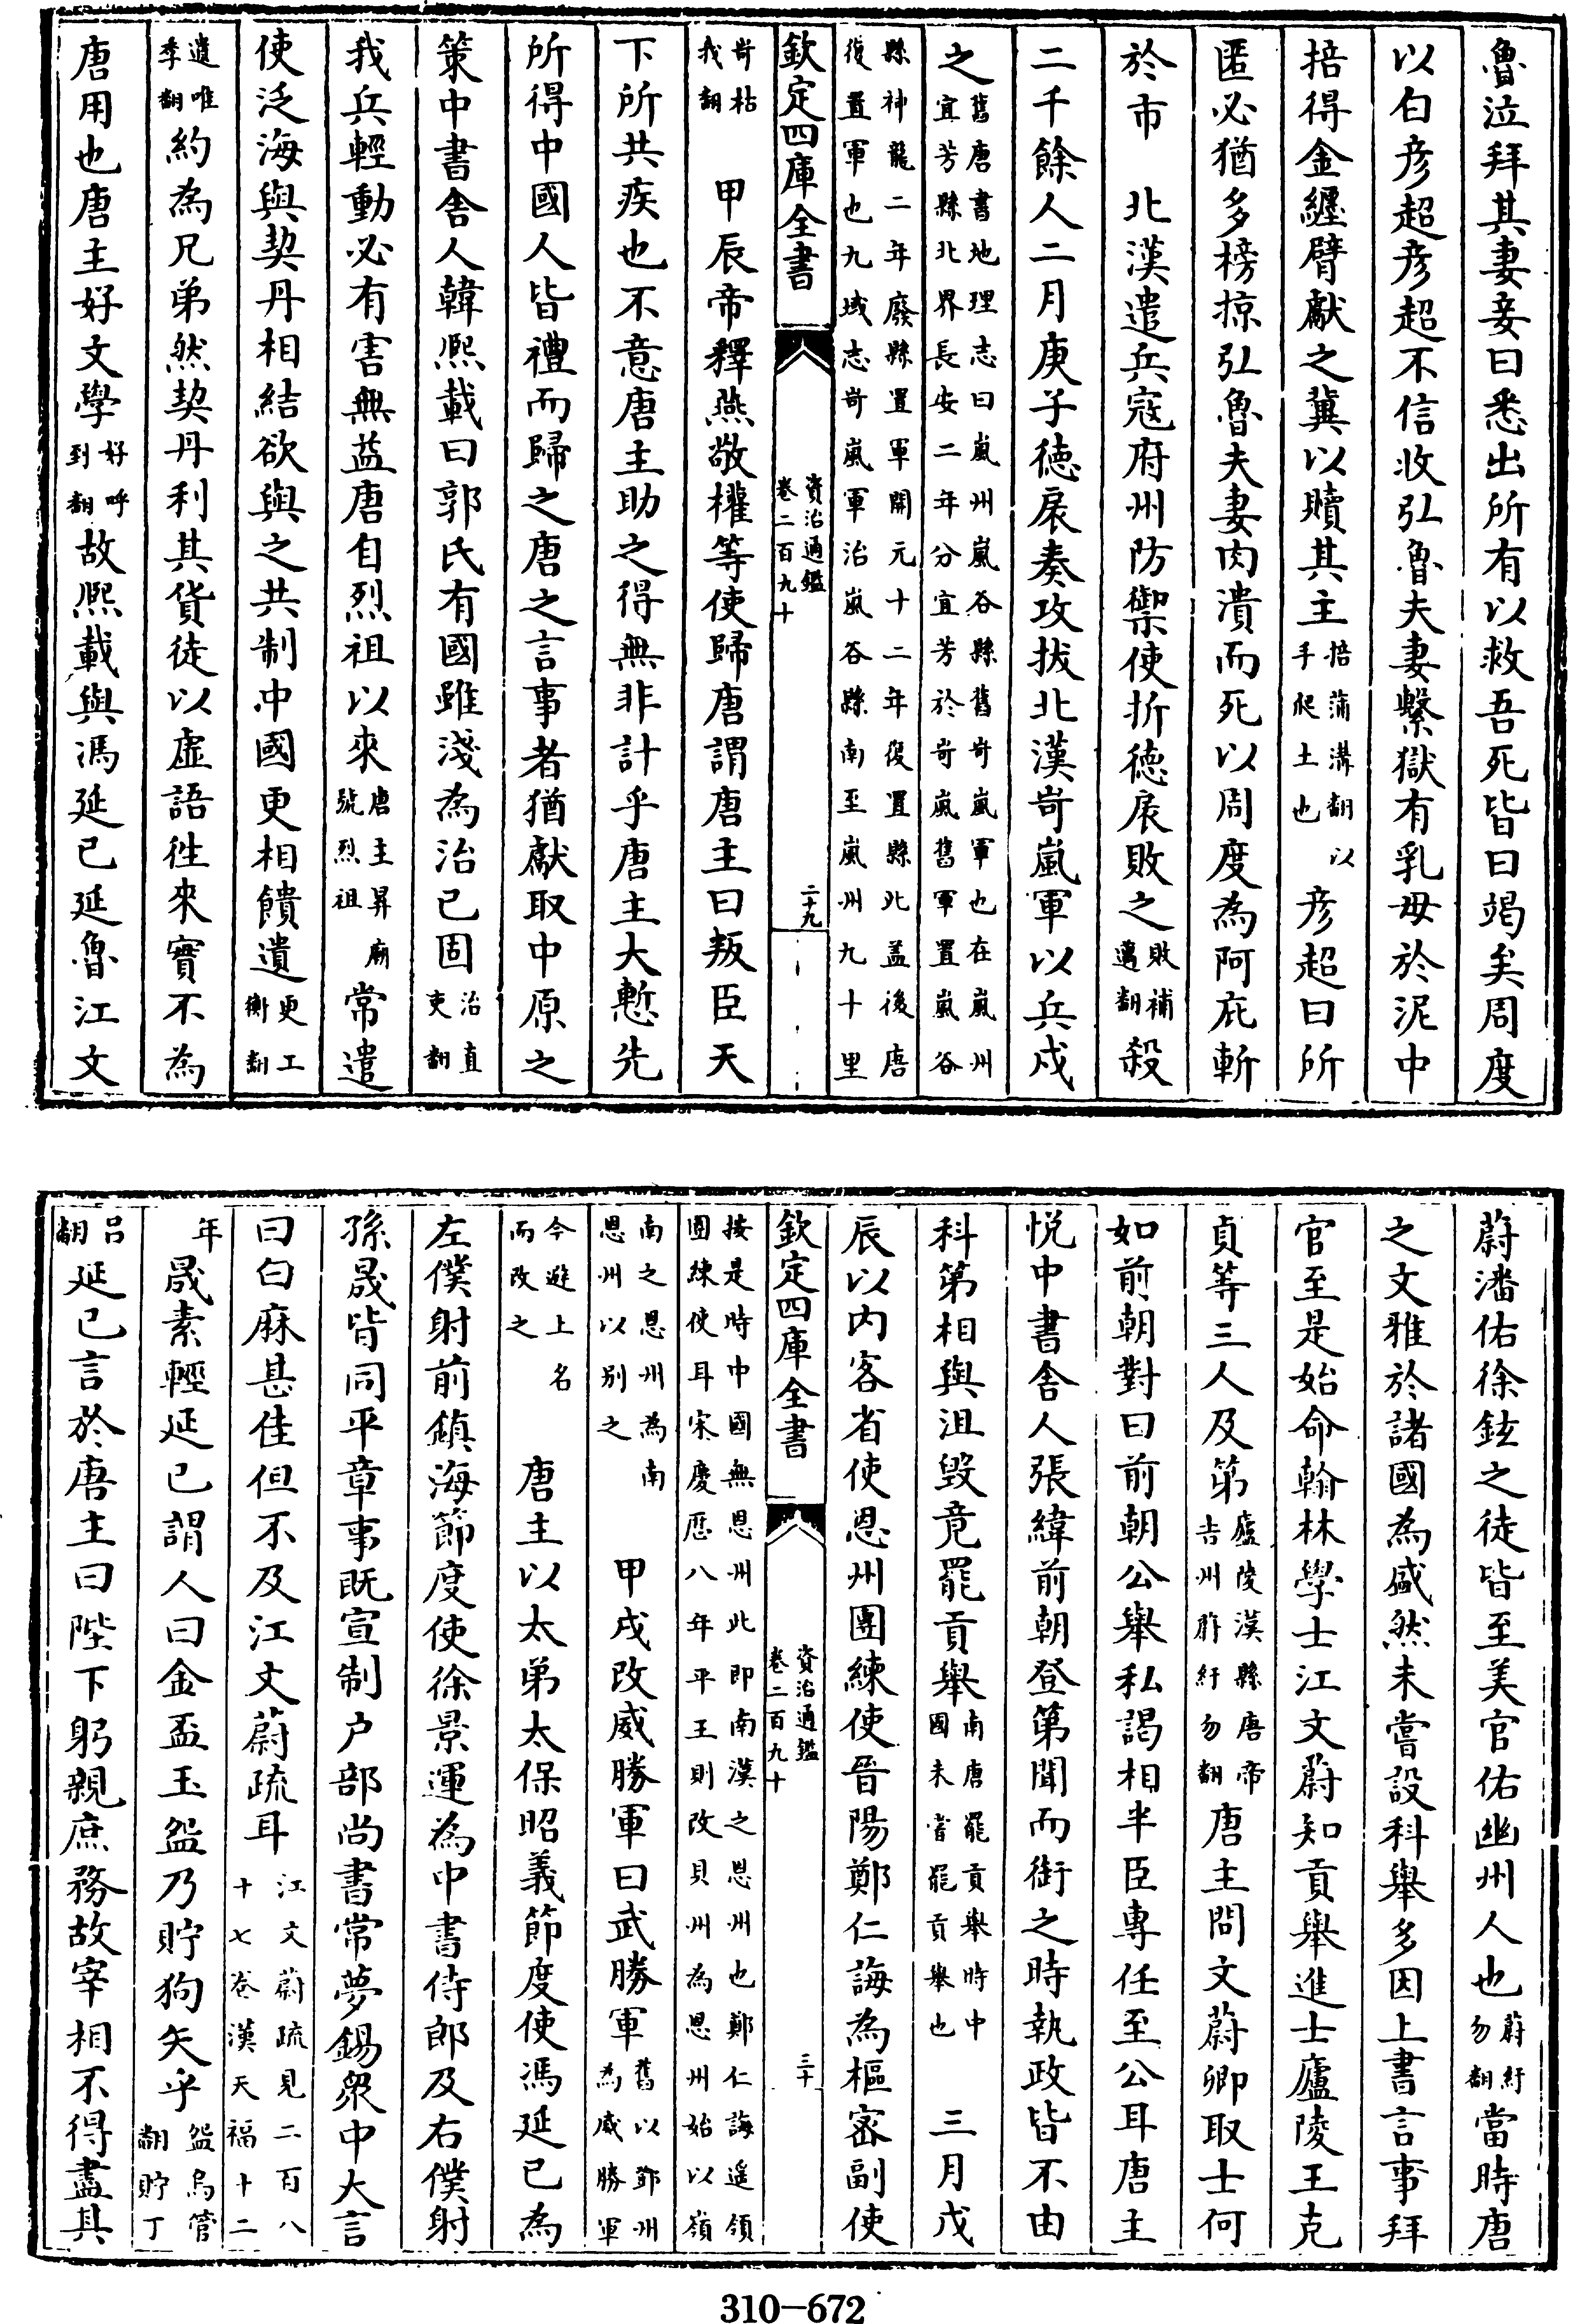 魯泣拜其妻妾曰悉出所有以救吾死皆曰竭矣周度
以白彦超彦超不信收弘魯夫妻繫獄有乳母於泥中
掊得金纒臂獻之冀以贖其主掊蒲溝翻以手爬土也彦超曰所
匿必猶多榜掠弘魯夫妻肉潰而死以周度為阿庇斬
於市 北漢遣兵寇府州防禦使折徳扆敗之敗補邁翻殺
二千餘人二月庚子徳扆奏攻拔北漢岢嵐軍以兵戍
之舊唐書地理志曰嵐州嵐谷縣舊岢嵐軍也在嵐州宜芳縣北界長安二年分宜芳於岢嵐舊軍置嵐谷
縣神龍二年廢縣置軍開元十二年復置縣此盖後唐復置軍也九域志岢嵐軍治嵐谷縣南至嵐州九十里
欽定四庫全書 資治通鑑卷二百九十 二十九
岢枯我翻 甲辰帝釋燕敬權等使歸唐謂唐主曰叛臣天
下所共疾也不意唐主助之得無非計乎唐主大慙先
所得中國人皆禮而歸之唐之言事者猶獻取中原之
策中書舍人韓熙載曰郭氏有國雖淺為治已固治直吏翻
我兵輕動必有害無益唐自烈祖以來唐主昪廟號烈祖常遣
使泛海與契丹相結欲與之共制中國更相饋遺更工衡翻
遺唯季翻約為兄弟然契丹利其貨徒以虚語徃來實不為
唐用也唐主好文學好呼到翻故熙載與馮延已延魯江文
蔚潘佑徐鉉之徒皆至美官佑幽州人也蔚紆勿翻當時唐
之文雅於諸國為盛然未嘗設科舉多因上書言事拜
官至是始命翰林學士江文蔚知貢舉進士廬陵王克
貞等三人及第廬陵漢縣唐帝吉州蔚紆勿翻唐主問文蔚卿取士何
如前朝對曰前朝公舉私謁相半臣專任至公耳唐主
悦中書舍人張緯前朝登第聞而銜之時執政皆不由
科第相與沮毁竟罷貢舉南唐罷貢舉時中國未嘗罷貢舉也 三月戊
辰以内客省使恩州團練使晉陽鄭仁誨為樞宻副使
欽定四庫全書 資治通鑑卷二百九十 三十
按是時中國無恩州此即南漢之恩州也鄭仁誨遥領團練使耳宋慶厯八年平王則改貝州為恩州始以嶺
南之恩州為南恩州以别之 甲戌改威勝軍曰武勝軍舊以鄧州為威勝軍
今避上名而改之 唐主以太弟太保昭義節度使馮延已為
左僕射前鎮海節度使徐景運為中書侍郎及右僕射
孫晟皆同平章事既宣制户部尚書常夢錫衆中大言
曰白麻甚佳但不及江文蔚疏耳江文蔚疏見二百八十七卷漢天福十二
年晟素輕延已謂人曰金盃玉盌乃貯狗矢乎盌烏管翻貯丁
吕翻延已言於唐主曰陛下躬親庶務故宰相不得盡其
310—672